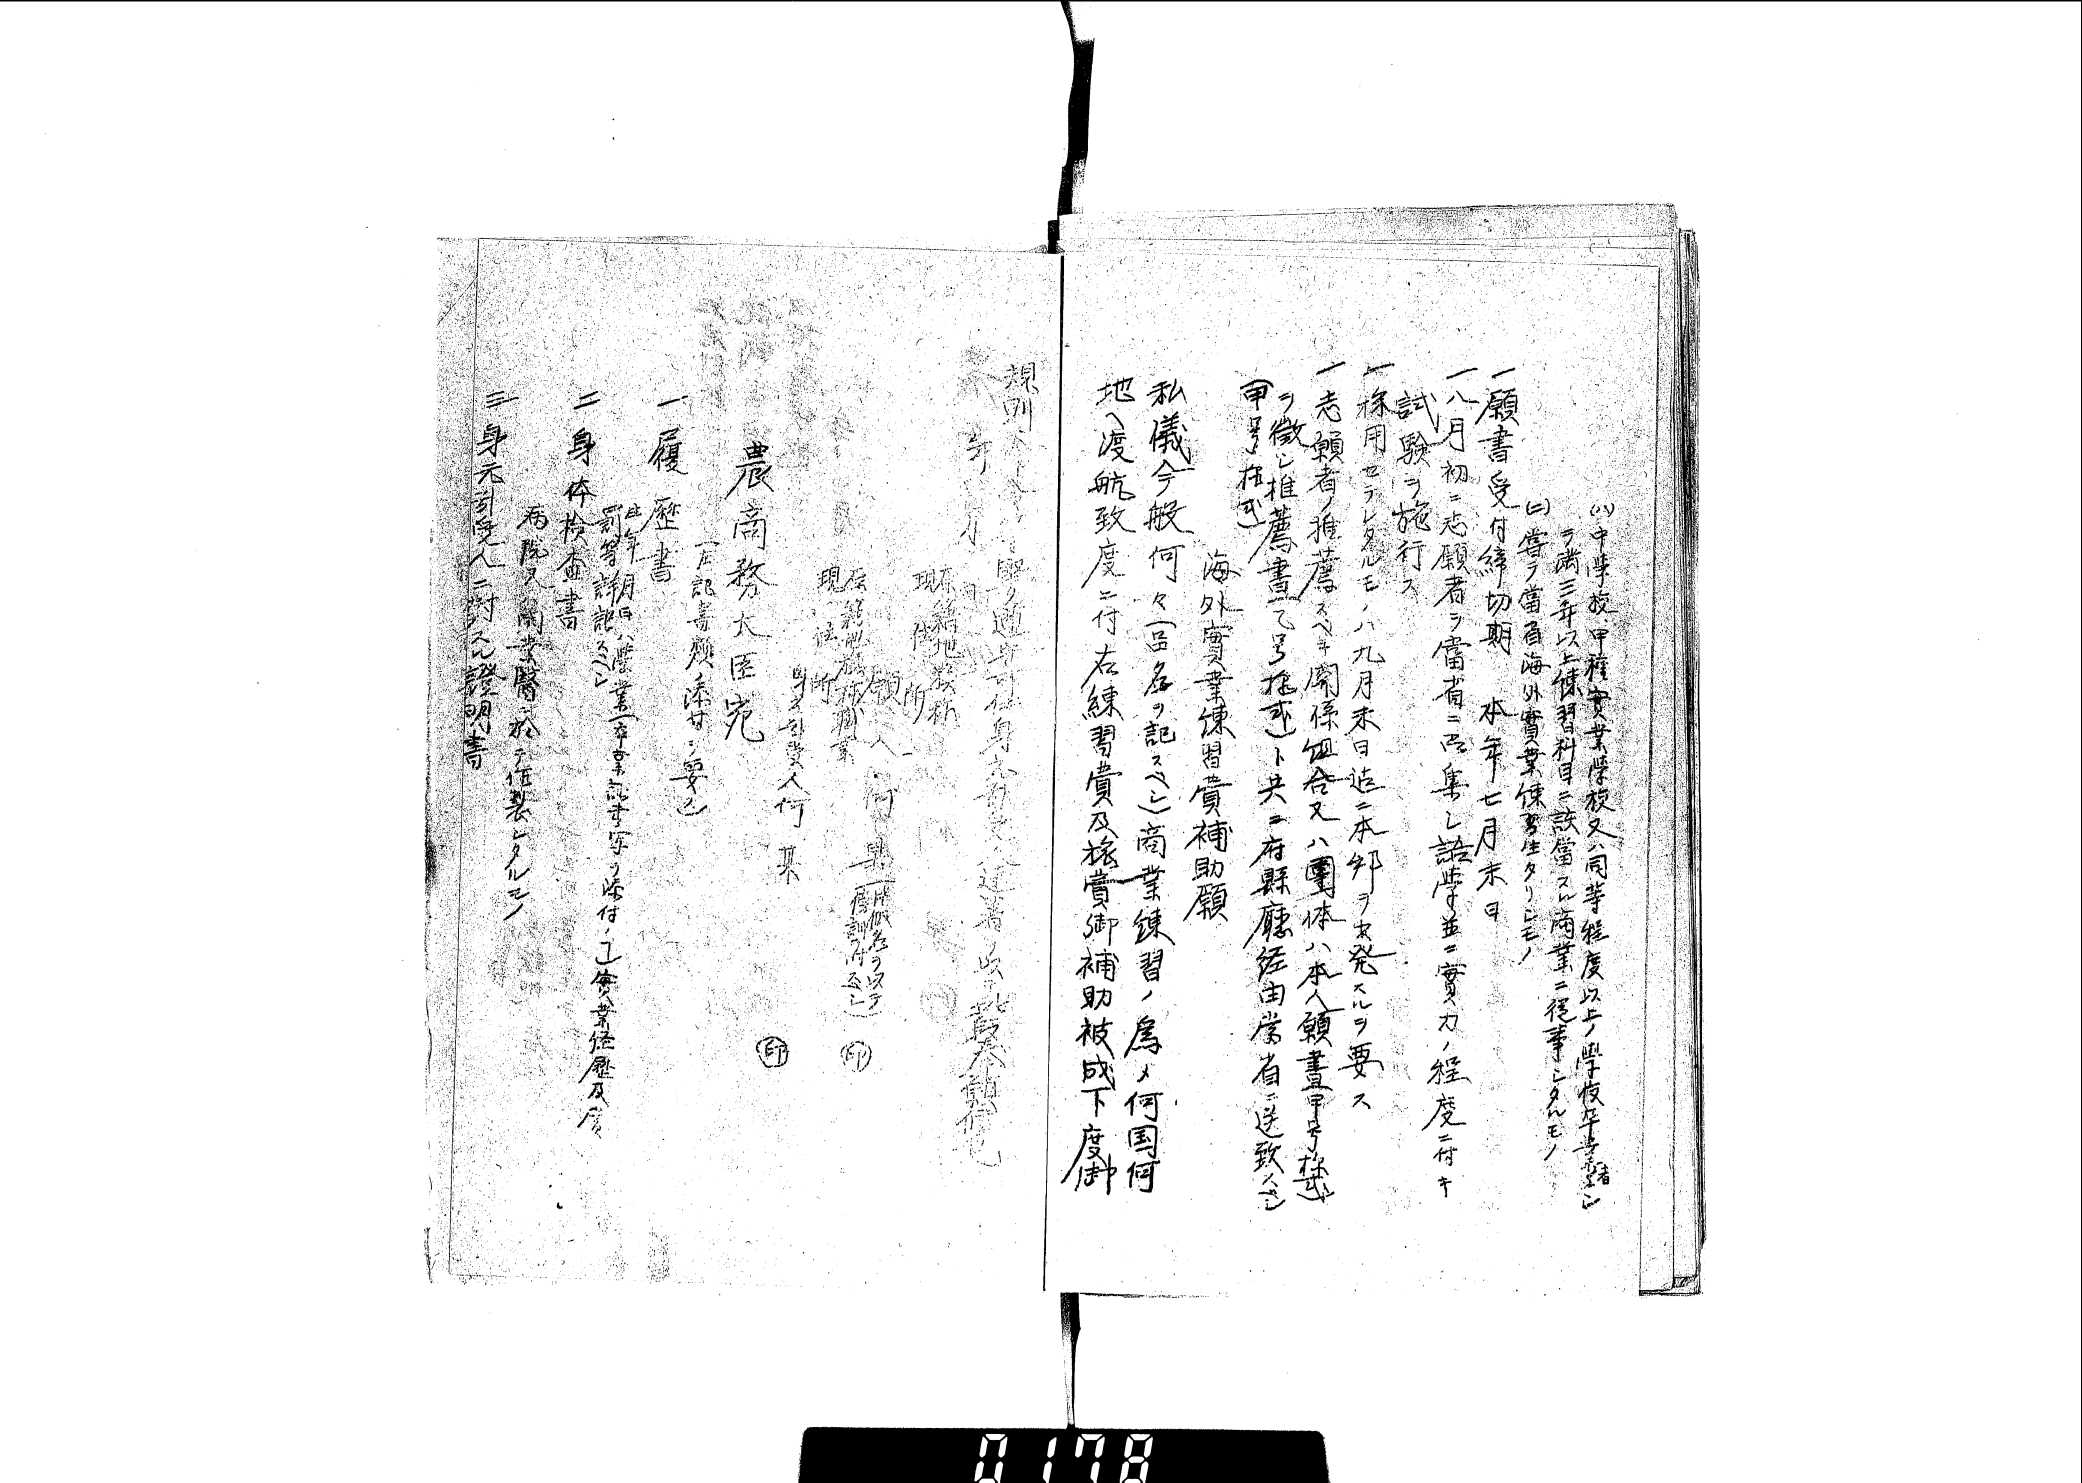 (ハ)中学校、甲種実業学校又ハ同等程度以上ノ學校卒業者ニシ
ヲ満三年以上練習科目ニ該當スル商業ニ従事シタルモノ
(ニ)嘗ヲ當省海外實業練習生タリシモノ
一願書受付締切期 本年七月末日
一八月初ニ志願者ヲ當省ニ召集シ語学並ニ實力ノ程度ニ付キ
試験ヲ施行ス
一採用セラレタルモノハ九月末日迄ニ本邦ヲ出発スルヲ要ス
一志願者ノ推薦スベキ関係組合又ハ團体ハ本人願書(甲号様式)
ヲ徴シ推薦書(乙号様式)ト共ニ府縣廳経由當省ニ送致スベシ
(甲号様式)
海外實業練習費補助願
私儀今般何々(品名ヲ記スベシ)商業練習ノ為メ何国何
地ヘ渡航致度ニ付右練習費及旅費御補助被成下度御
規則 通 身元 連署ノ 此段奉願候也
年 月 日
本籍地族称
現住所
願人 何 某(片假名ヲ以テ傍訓ヲ付スベシ) 印
原籍地族称職業
現住所
身元引受人何 某 印
農商務大臣宛
(左記書類ノ添付ヲ要ス)
一 履歴書
生年月日ハ學業(卒業証書写ヲ添付ノコト)實業経歴及賞
罰等詳記スベシ
二 身体検査書
病院又ハ開業醫ニ於テ作製シタルモノ
三 身元引受人ニ対スル證明書
0178